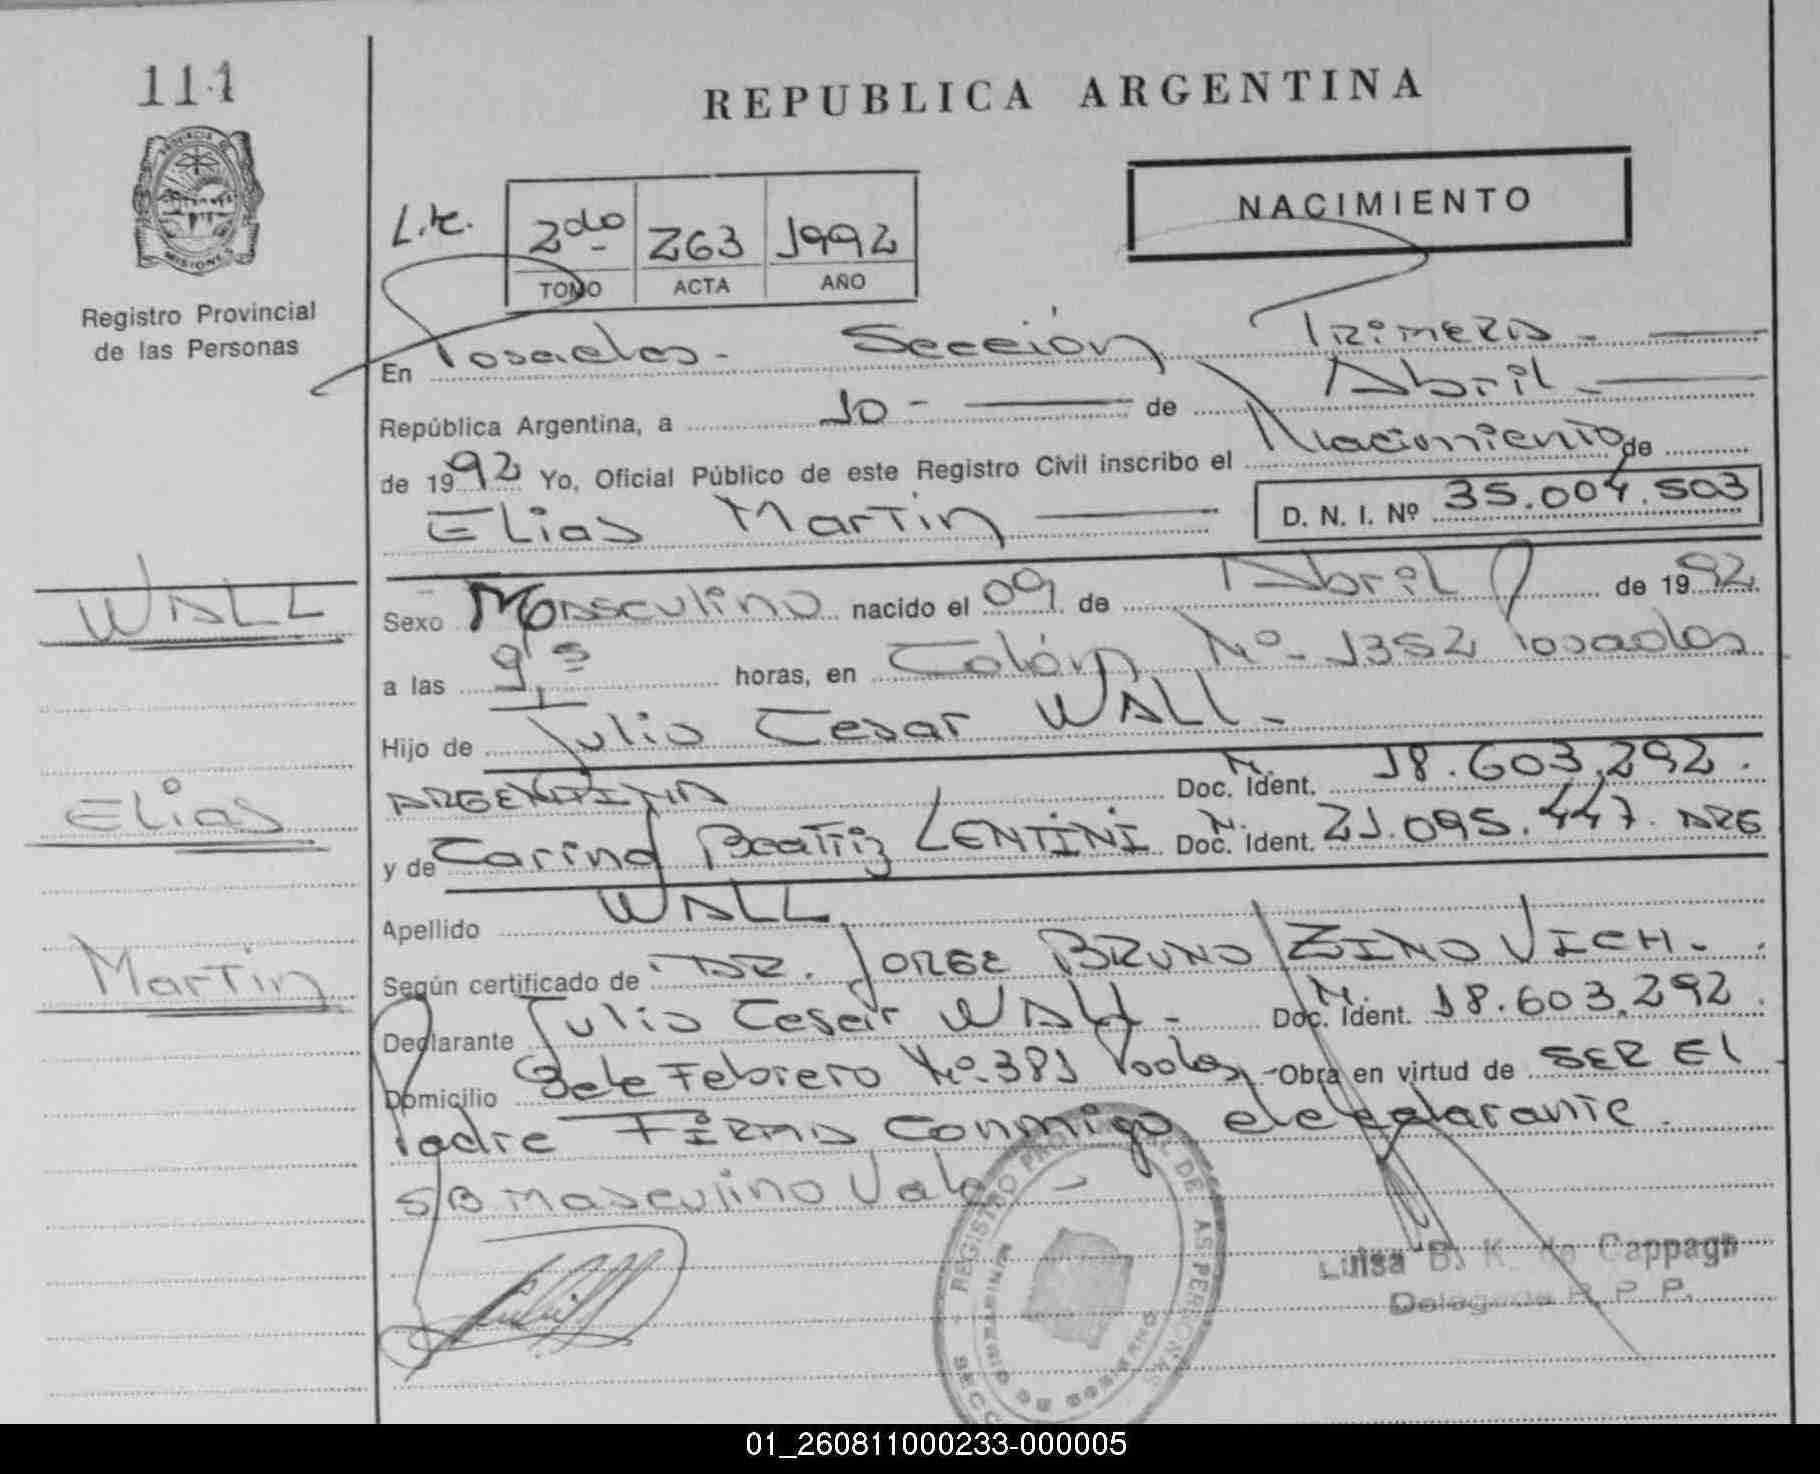 111
REPUBLICA ARGENTINA
PROVINCIA DE
MISIONES
Registro Provincial
de las Personas
NACIMIENTO
2do 263 1992
TOMO ACTA AÑO
En Posadas - Sección Primera -
República Argentina, a 10 - de Abril -
de 1992 Yo, Oficial Público de este Registro Civil inscribo el Nacimiento de
Elias Martin D. N. I. Nº 35.004.503
WALL
Sexo Masculino nacido el 09 de Abril de 1992
a las 9,15 horas, en Colón Nº 1352 Posadas
Hijo de Julio Cesar WALL -
Elias
ARGENTINA Doc. Ident. M. 18.603.292.
y de Carina Beatriz LENTINI Doc. Ident. N. 21.095.447. ARG
Apellido WALL
Martin
Según certificado de DR. JORGE BRUNO ZINOVICH.
Declarante Julio Cesar WALL - Doc. Ident. M. 18.603.292.
Domicilio 3 de Febrero Nº 381 Pdas - Obra en virtud de SER El
Padre FIRMA conmigo el declarante.
S/B Masculino Vale -
REGISTRO PROVINCIAL DE LAS PERSONAS
Luisa B. K. de Cappagh
Delegada R. P. P.
01_260811000233-000005